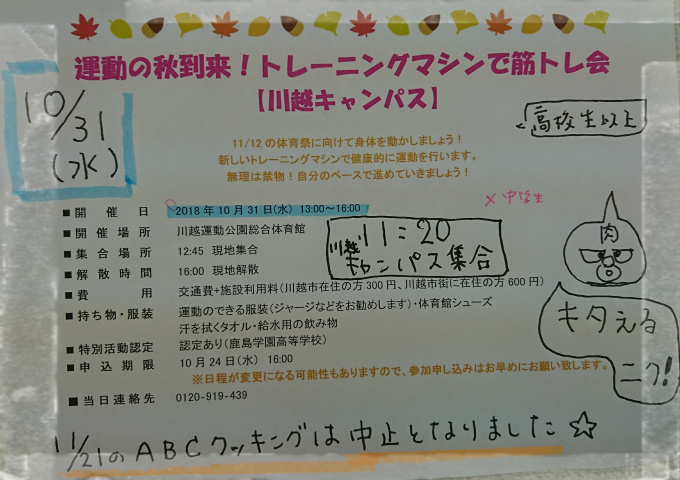 運動の秋到来！トレーニングマシンで筋トレ会
【川越キャンパス】
10/31
(水)
高校生以上
11/12の体育祭に向けて身体を動かしましょう！
新しいトレーニングマシンで健康的に運動を行います。
無理は禁物！自分のペースで進めていきましょう！
×中学生
■開催日 2018年10月31日(水) 13:00～16:00
■開催場所 川越運動公園総合体育館
■集合場所 12:45 現地集合
川越 11:20
キャンパス集合
■解散時間 16:00 現地解散
■費用 交通費+施設利用料(川越市在住の方300円、川越市街に在住の方600円)
■持ち物・服装 運動のできる服装(ジャージなどをお勧めします)・体育館シューズ
汗を拭くタオル・給水用の飲み物
■特別活動認定 認定あり(鹿島学園高等学校)
■申込期限 10月24日(水) 16:00
※日程が変更になる可能性もありますので、参加申し込みはお早めにお願い致します。
■当日連絡先 0120-919-439
肉
キタえる
ニク!
11/21のABCクッキングは中止となりました☆